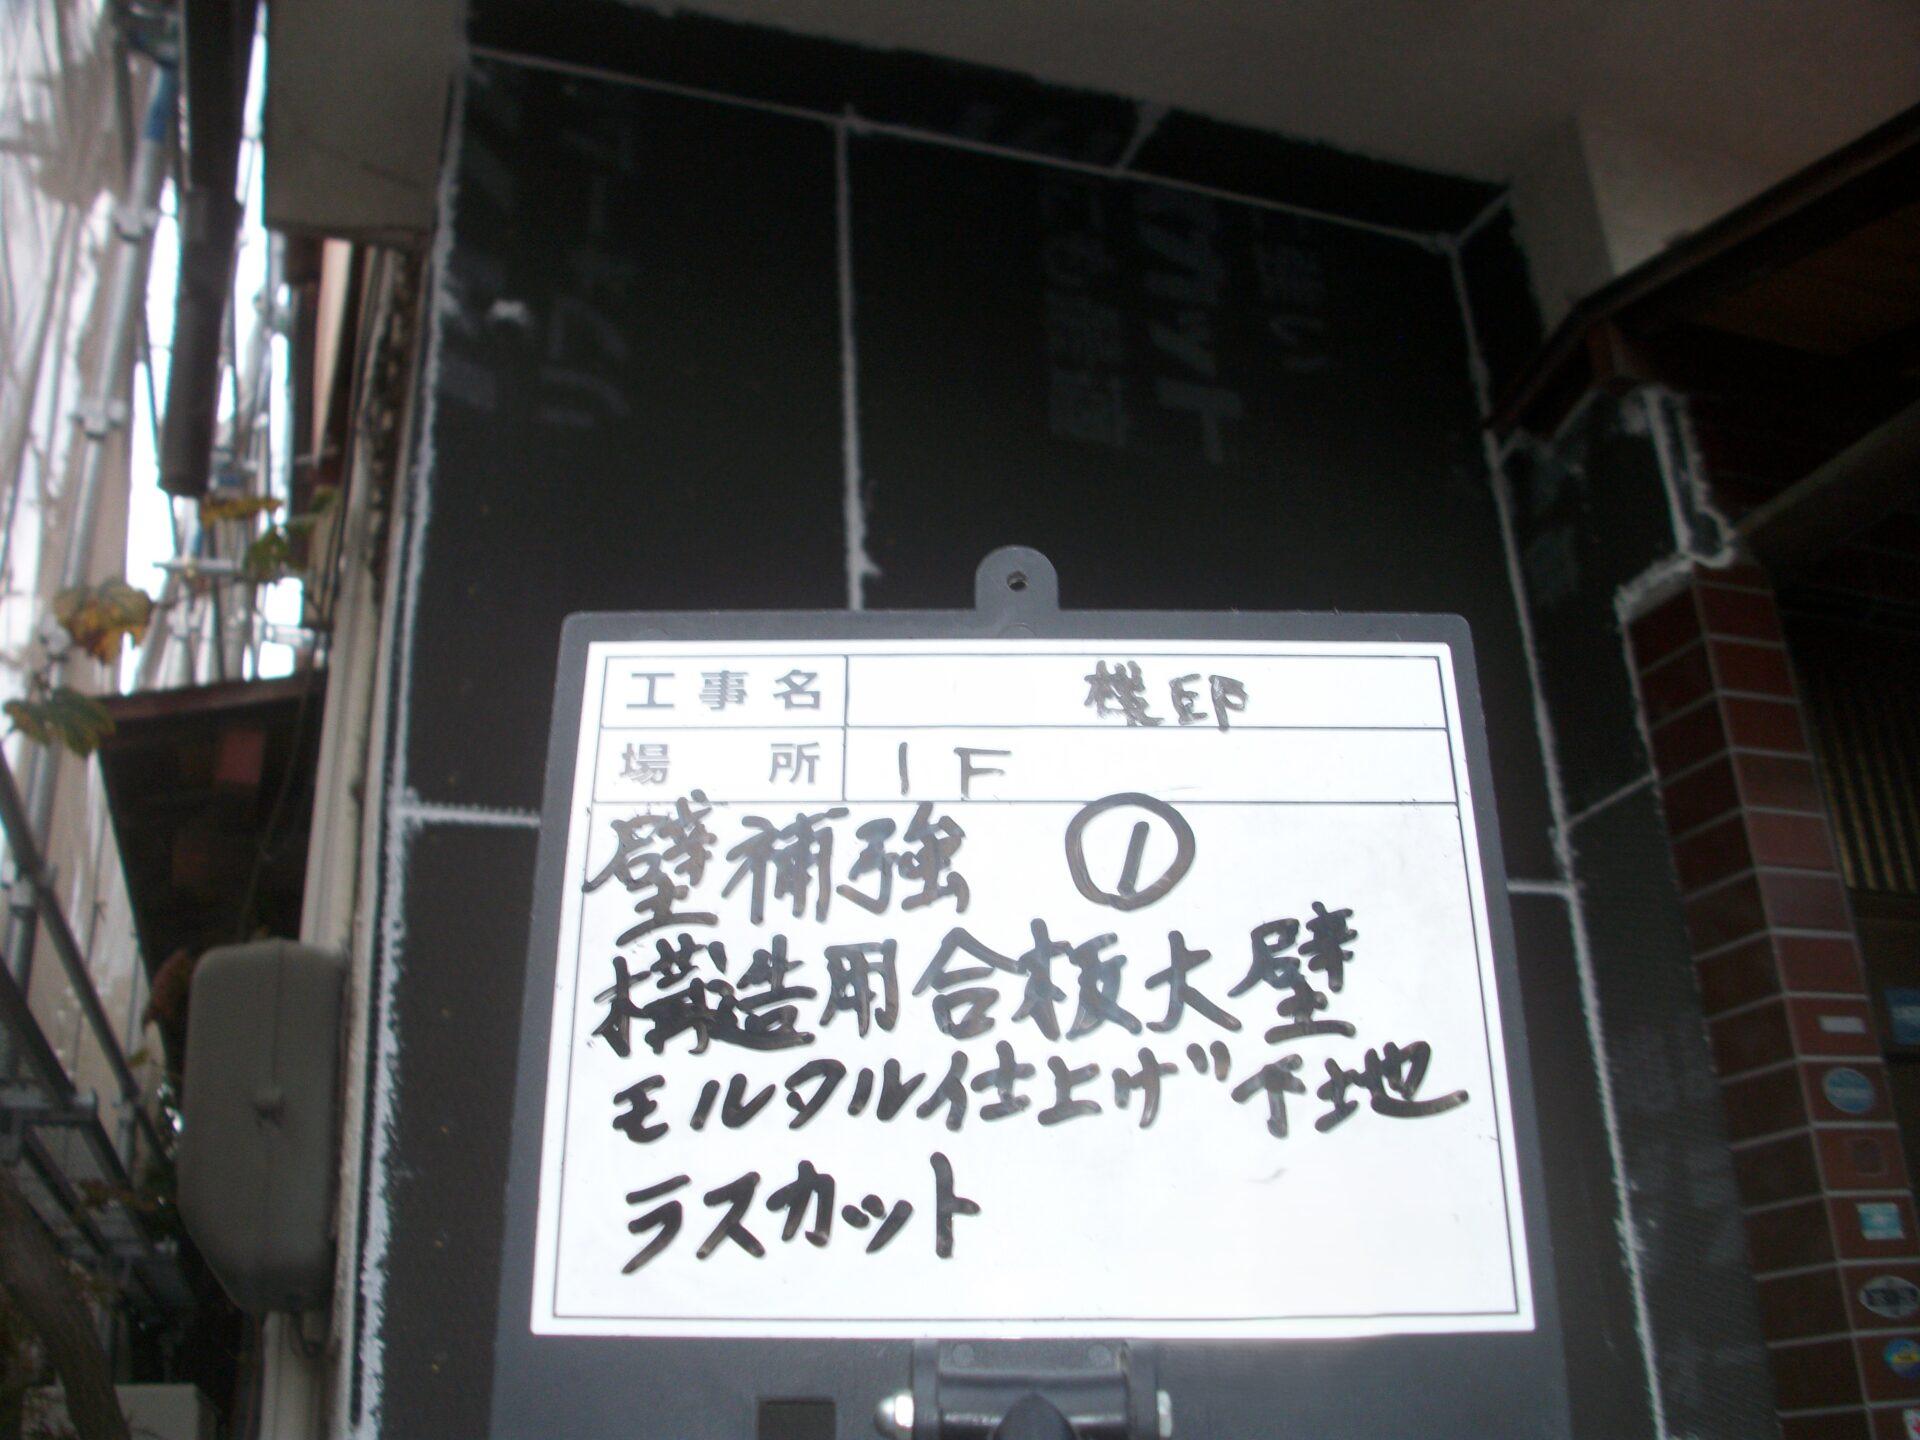 工事名 様邸
場所 1F
壁補強 ①
構造用合板大壁
モルタル仕上げ下地
ラスカット